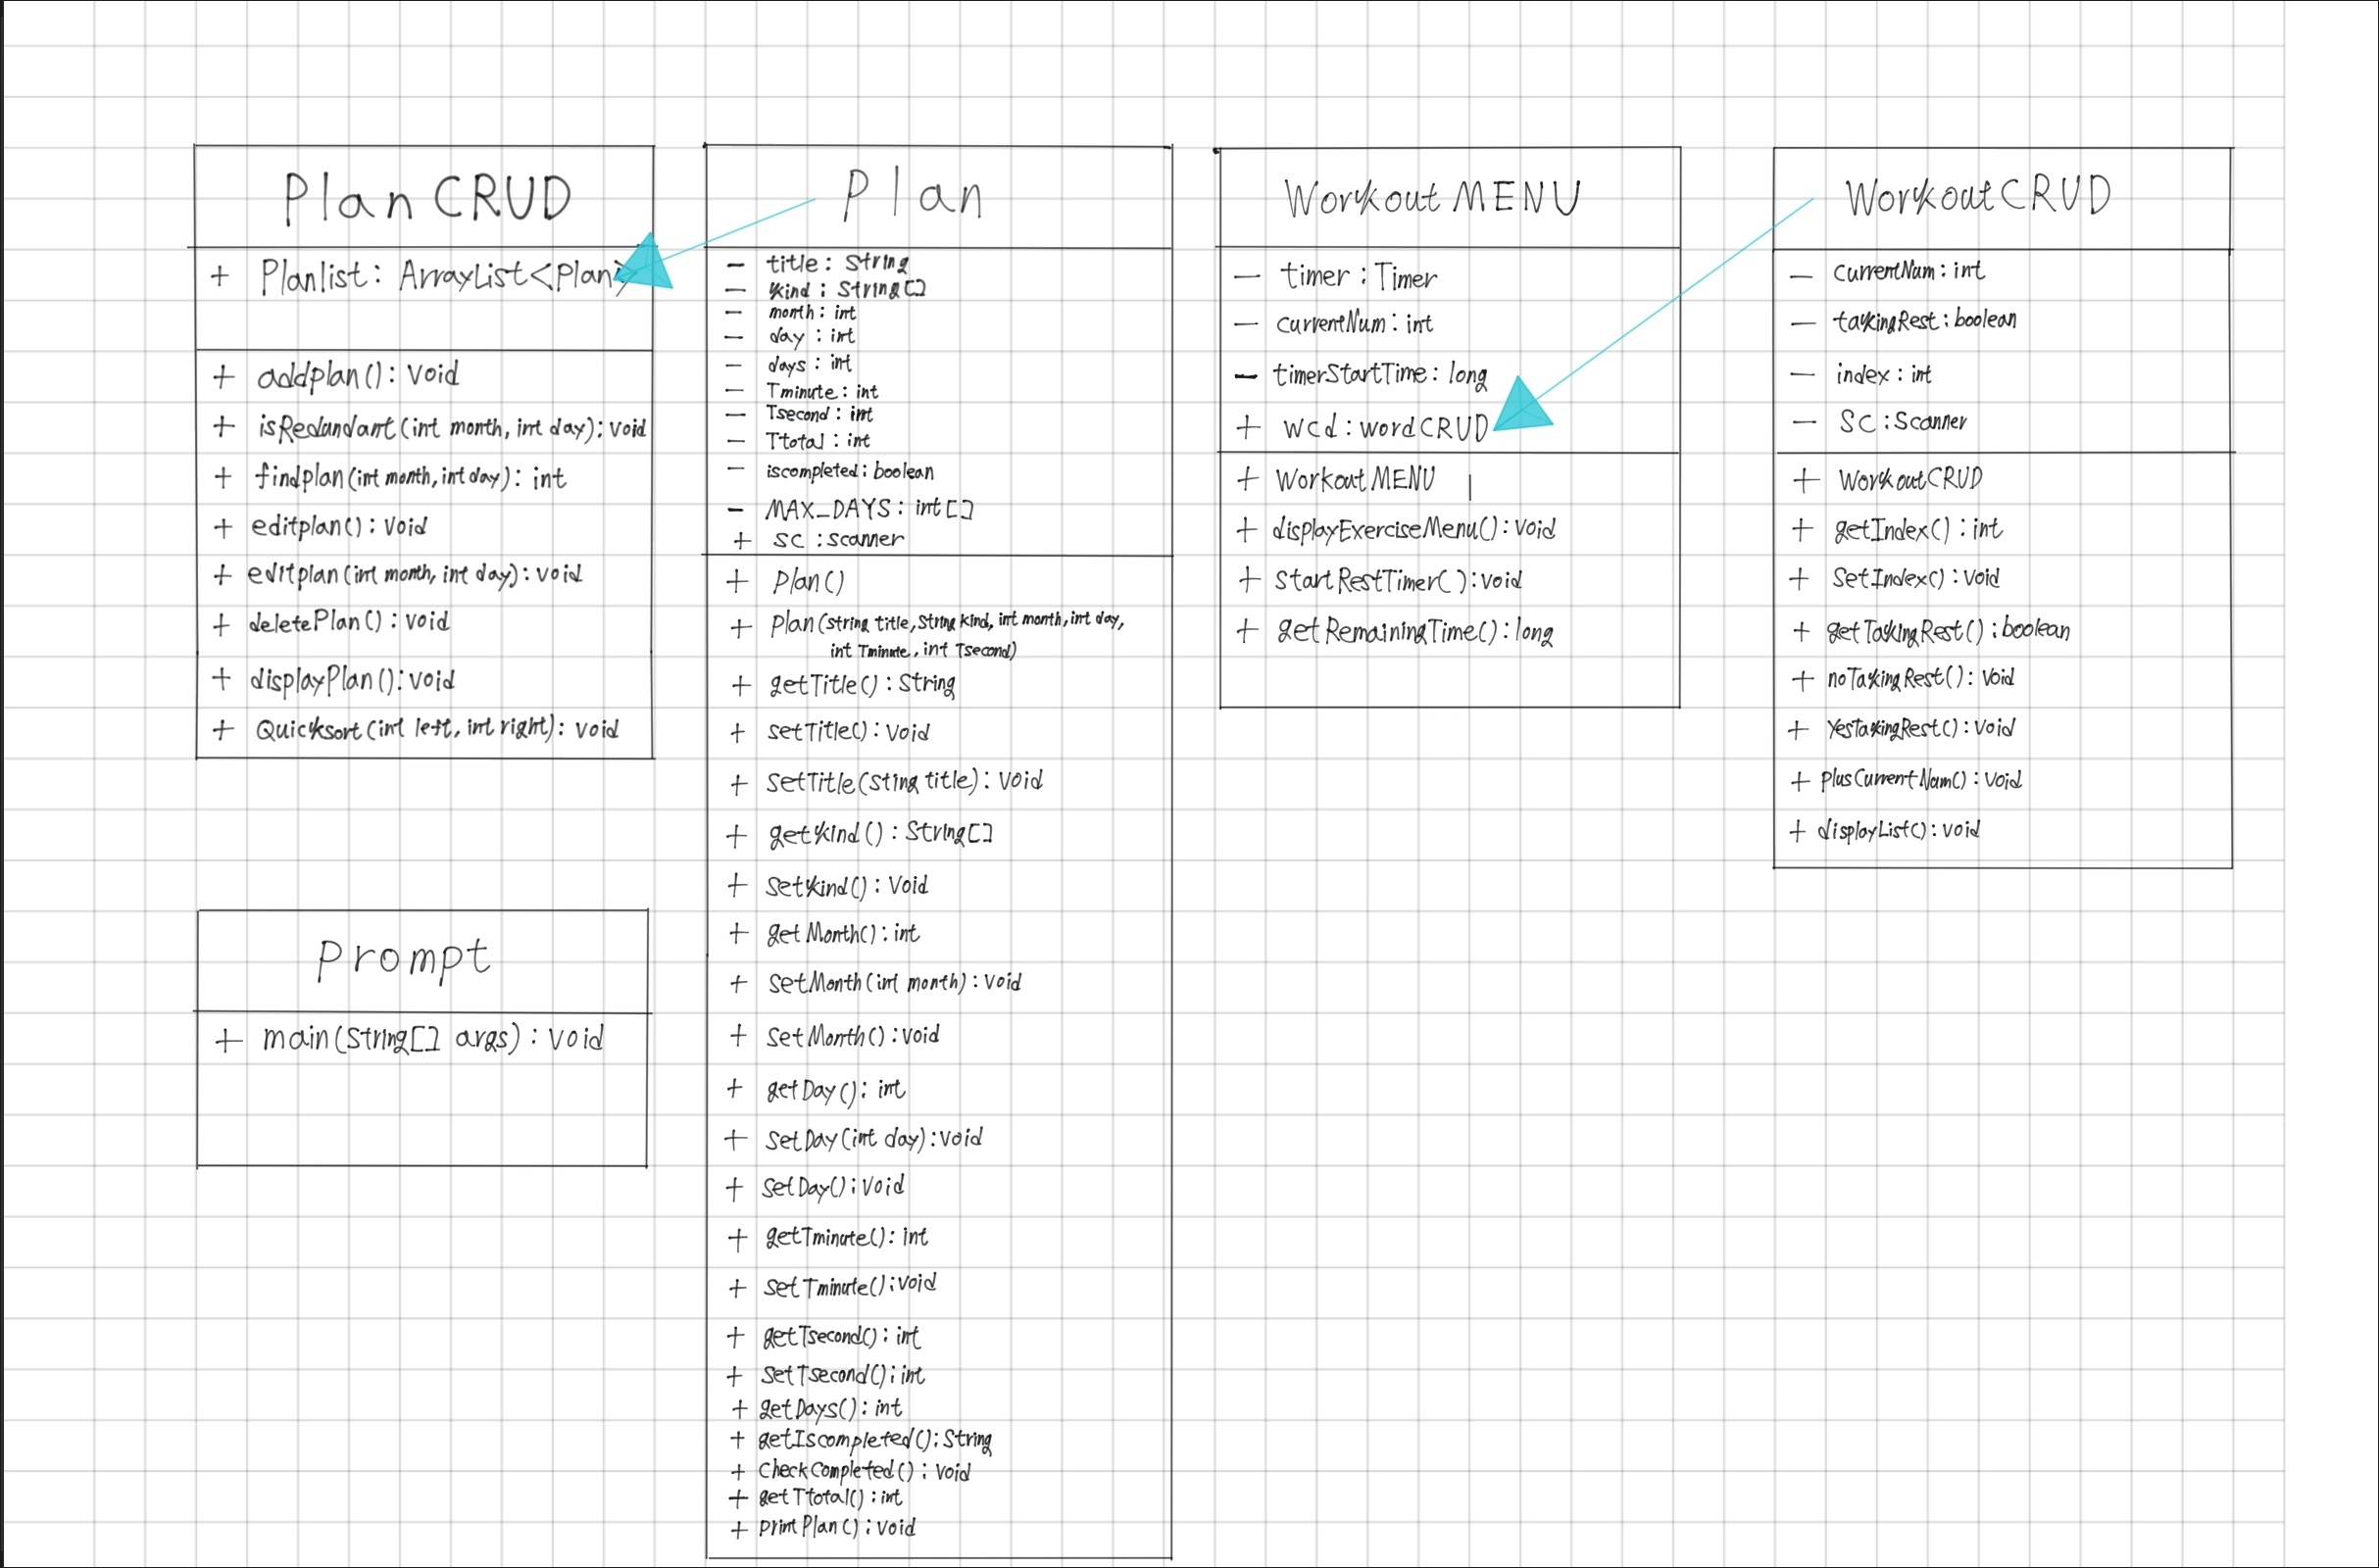 Plan CRUD
+ Planlist: ArrayList<Plan>
+ addplan(): Void
+ isRedundant(int month, int day): void
+ findplan(int month, int day): int
+ editplan(): Void
+ editplan(int month, int day): void
+ deletePlan(): void
+ displayPlan(): void
+ Quicksort(int left, int right): void
Prompt
+ main(String[] args): void
Plan
- title: String
- kind: String[]
- month: int
- day: int
- days: int
- Tminute: int
- Tsecond: int
- Ttotal: int
- iscompleted: boolean
- MAX_DAYS: int[]
+ SC: scanner
+ Plan()
+ Plan(string title, String kind, int month, int day,
int Tminute, int Tsecond)
+ getTitle(): String
+ setTitle(): Void
+ setTitle(Sting title): Void
+ getkind(): String[]
+ setkind(): Void
+ getMonth(): int
+ setMonth(int month): Void
+ setMonth(): void
+ getDay(): int
+ setDay(int day): void
+ setDay(): Void
+ getTminute(): int
+ setTminute(): void
+ getTsecond(): int
+ setTsecond(): int
+ getDays(): int
+ getIscompleted(): String
+ CheckCompleted(): Void
+ getTtotal(): int
+ printPlan(): void
Workout MENU
- timer: Timer
- currentNum: int
- timerStartTime: long
+ wcd: wordCRUD
+ Workout MENU
+ displayExerciseMenu(): void
+ startRestTimer(): void
+ getRemainingTime(): long
WorkoutCRUD
- currentNum: int
- takingRest: boolean
- index: int
- SC: Scanner
+ WorkoutCRUD
+ getIndex(): int
+ SetIndex(): Void
+ getTakingRest(): boolean
+ noTakingRest(): Void
+ YesTakingRest(): Void
+ plusCurrentNam(): Void
+ displayList(): void